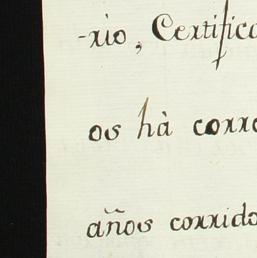 -rio, Certific
os hà corr
años corrido